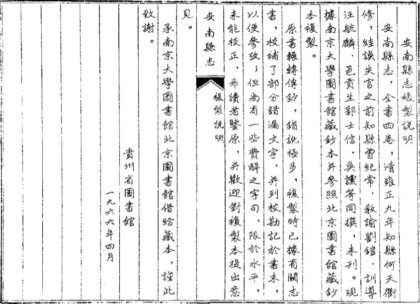 安南縣志複製説明
安南縣志，全書四卷，清雍正九年知縣何天衢
修，維誤失官之前知縣曹紀常，教諭劉鑑，訓導
汪毓麟，邑貢生郭士信，吳謹等同撰，未刊。現
據南京大學圖書館藏鈔本并參照北京圖書館藏鈔
本複製。
原書輾轉傳鈔，錯訛極多，複製時已據有關志
書，校補了部分錯漏文字，并列校勘記於書末，
以便參考；但尚有一些費解之字句，限於水平，
未能校正，希讀者鑒原，并歡迎對複製本提出意
安南縣志
複製説明
見。
承南京大學圖書館北京圖書館借給藏本，謹此
致謝。
貴州省圖書館
一九六六年四月